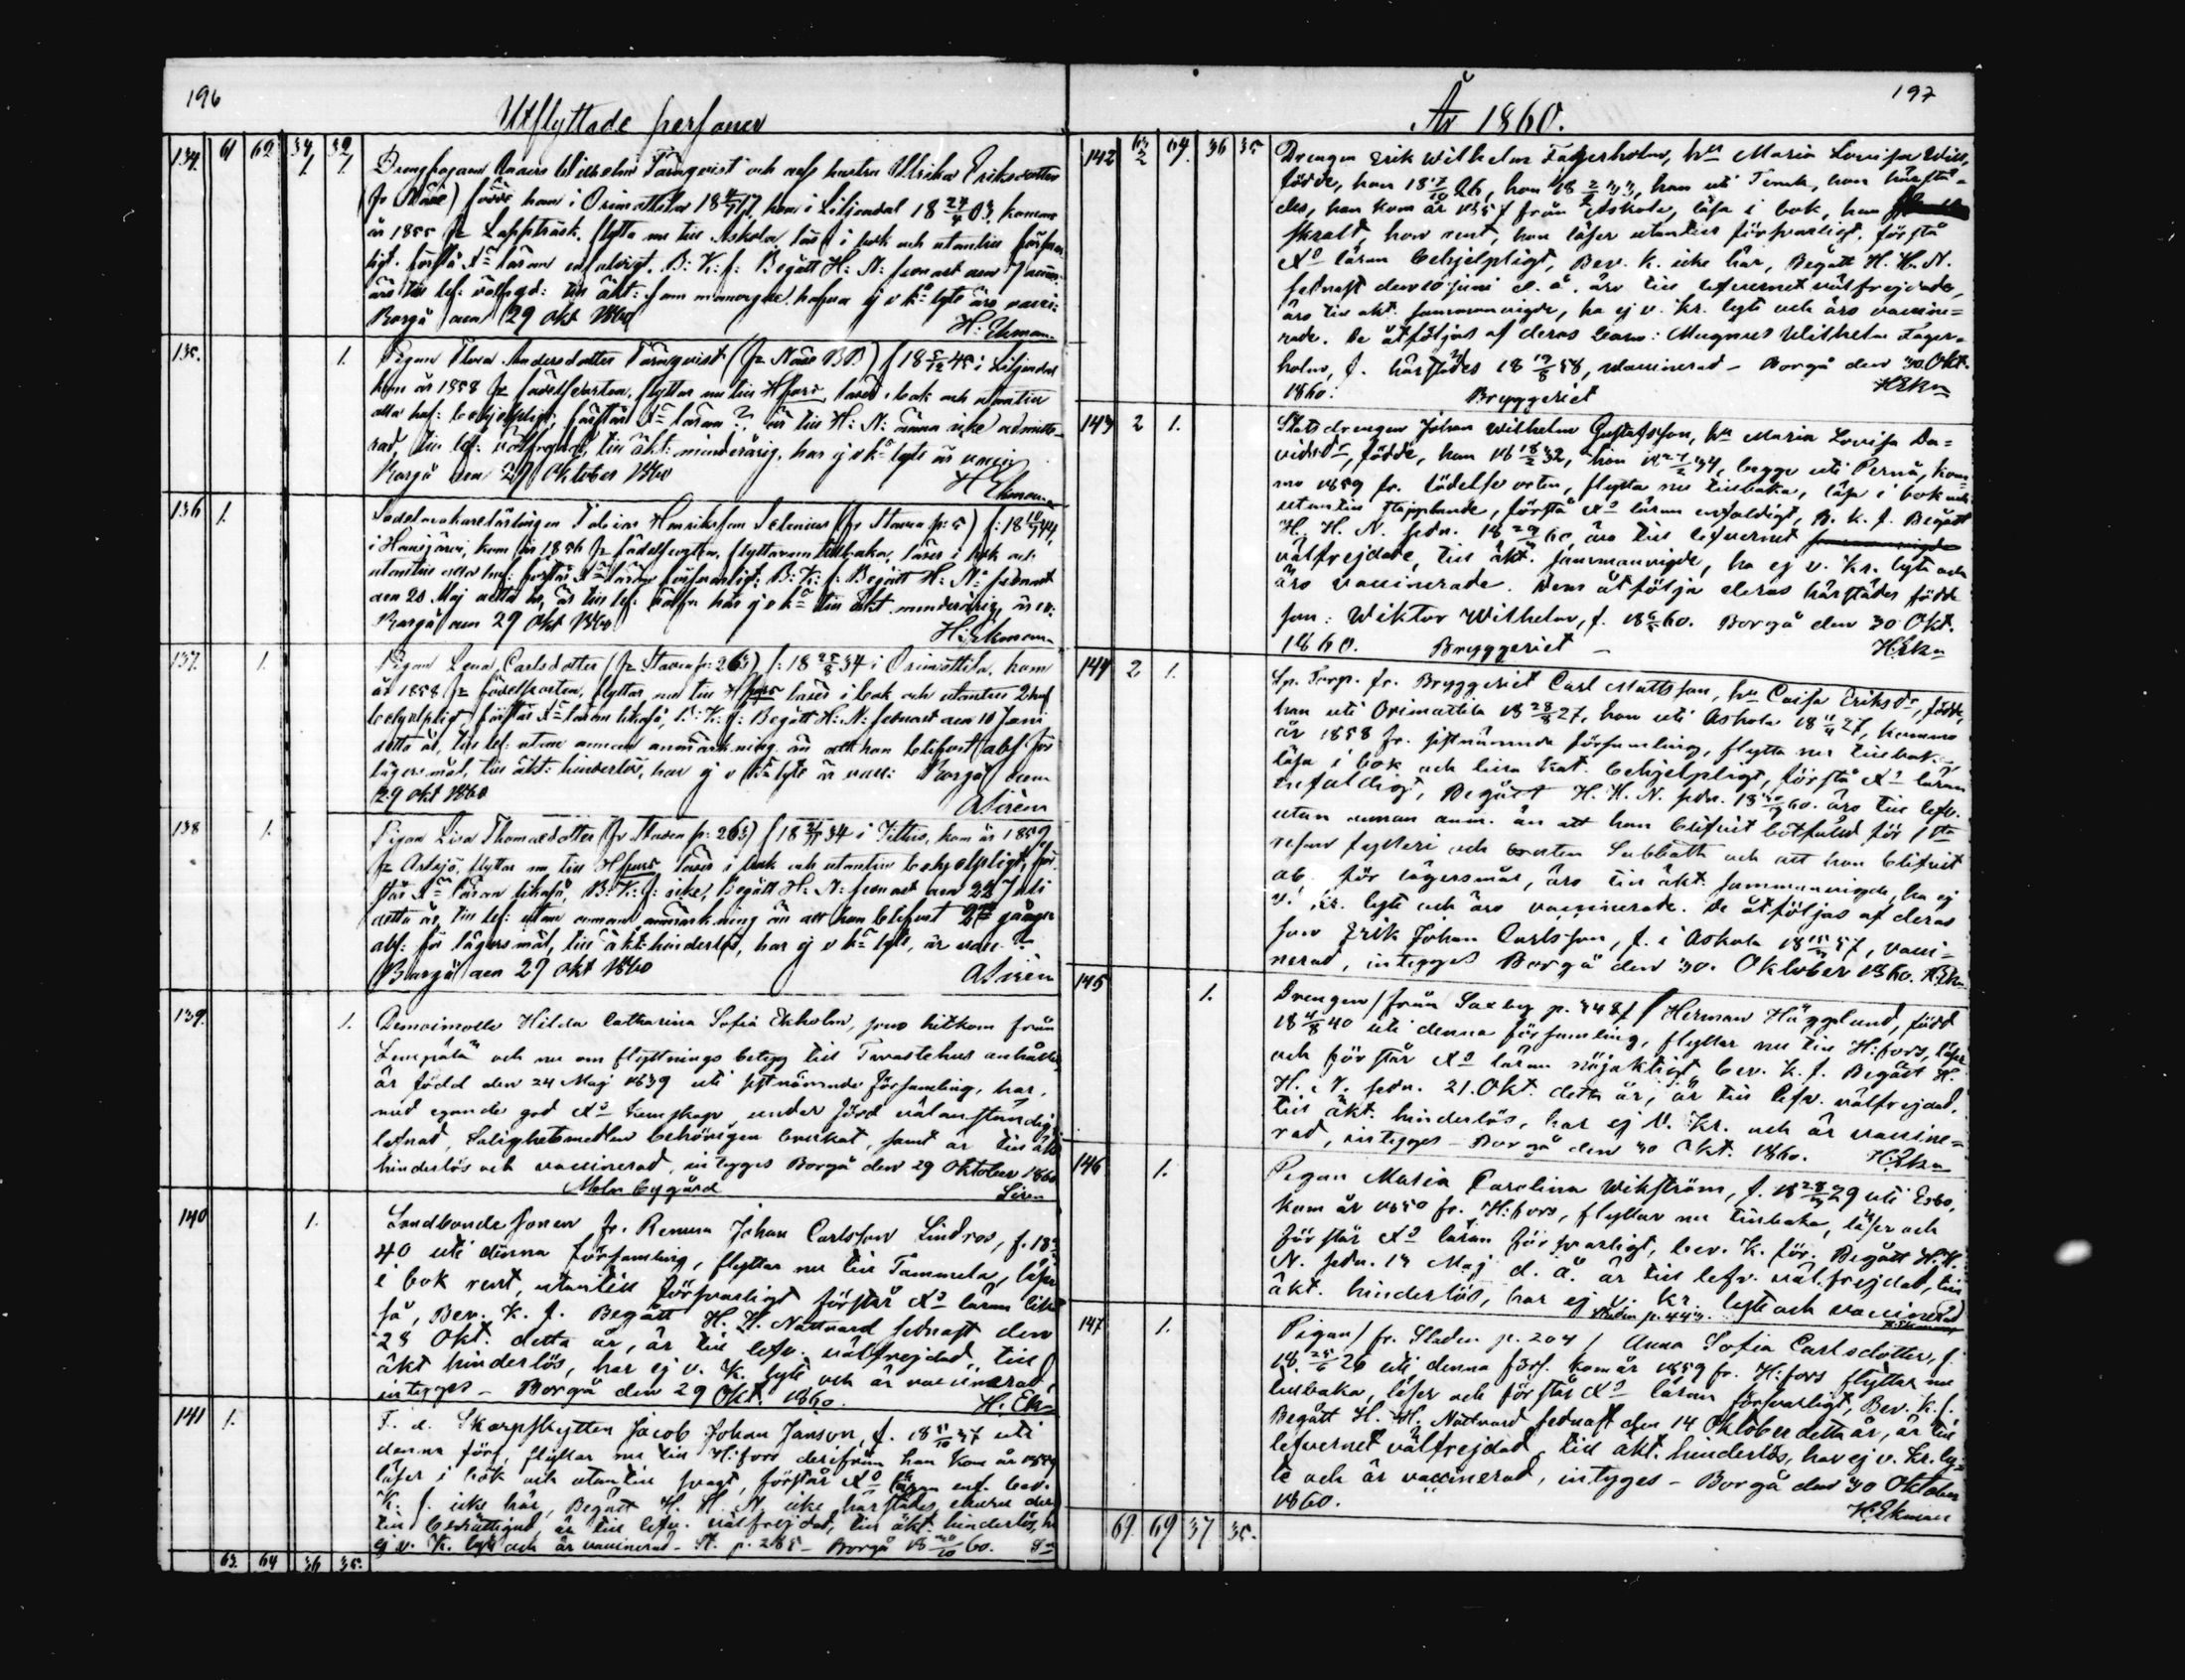 196
Utflyttade personer
134. 61 62 34 32
1. 1.
Drängkarlen Anders Wilhelm Tärnqvist och dess hustru Ulrika Eriksdotter
(fr Näse) födde, han i Orimattila 18 17, hon i Liljendal 18 27/4 03, kommo
år 1855 fr Lappträsk, flytta nu till Askola, läsa i bok och utantill försvar-
ligt, förstå Xna läran enfaldigt, B: K: f: Begått H: N: sednast den
äro till lef: välfregd: till äkt: sammanvigde, hafva ej v kr lyte äro vacci:
Borgå den 29 Okt 1860
H: Ekman
135. 1.
Pigan Flora Andersdotter Tärnqvist (fr Näse BB) f 18 5/12 45 i Liljendal
kom år 1858 fr födelseorten, flyttar nu till Hfors, läser i bok och utantill
alla huf: behjelpligt, förstår Xna läran är till H: N: ännu icke admitte-
rad, till lef: välfregdad, till äkt: minderårig, har ej v kr lyte är vaccin
Borgå den 29 Oktober 1860
H Ekman
136 1.
Sadelmakarelärlingen Tobias Henriksson Selenius (fr Staden p: 5) f: 18 44,
i Hausjärvi, kom år 1856 fr födelseorten, flyttar nu tillbaka, läser i bok och
utantill alla huf: förstår Xna läran försvarligt, B: K: f: Begått H: N: sednast
den 20 Maj detta år, är till lef: välfr: har ej v kr till äkt minderårig är v:
Borgå den 29 Okt 1860
H: Ekman
137. 1.
Pigan Lena Carlsdotter (fr Staden p: 263) f: 18 25/8 34 i Orimattila, kom
år 1858 fr födelseorten, flyttar nu till Hfors läser i bok och utantill 2 huf
behjelpligt, förstår Xna läran likaså, B: K: f: Begått H: N: sednast den 10 Juni
detta år, till lef: utan annan anmärkning än att hon blifvit abs: för
lägersmål, till äkt: hinderlös, har ej v kr lyte är vacc: Borgå den
29 Okt 1860
A Sirén
138 1.
Pigan Lisa Thomasdotter (fr Staden p: 263) f 18 34 i Jittis, kom år 1859
fr Artsjö, flyttar nu till Hfors läser i bok och utantill behjelpligt, för-
står Xna läran likaså, B: K: f: icke, Begått H: N: sednast den 22 Juli
detta år, till lef: utan annan anmärkning än att hon blifvit 2ne gånger
abs: för lägersmål, till äkt: hinderlös, har ej v kr lyte, är vacc:
Borgå den 29 Okt 1860
A Sirén
139. 1.
Demoiselle Hilda Catharina Sofia Ekholm, som hitkom från
Lempälä och nu om flyttnings betyg till Tavastehus anhåller
är född den 24 Maj 1839 uti sistnämnde församling, har,
med egande god Xs kunskap under förd välanständig
lefnad, Salighetsmedlen behörigen brukat, samt är till äkt
hinderlös och vaccinerad, intygges Borgå den 29 Oktober 1860
Molnbygård Siren
140 1.
Landbonde sonen fr. Renum Johan Carlsson Lindros, f. 18
40 uti denna församling, flyttar nu till Tammela, läser
i bok rent, utantill försvarligt förstår Xs läran lika
så, Bev. K. f. Begått H. H. Nattvard sednast den
28 Okt. detta år, är till lefv. välfrejdad, till
äkt hinderlös, har ej v. K. lyte och är vaccinerad,
intygges – Borgå den 29 Okt. 1860. H. Ek
141 1.
F. d. Skarpskytten Jacob Johan Janson, f. 18 5/10 37 uti
denna förs, flyttar nu till H:fors derifrån han kom år 1859
läser i bok och utantill svagt, förstår Xs läran enf. bev.
K. f. icke här, Begått H. H. N. icke härstädes, ehuru der
till berättigad, är till lefv. välfrejdad, till äkt. hinderlös, har
ej v. K. lyte och är vaccinerad – St. p. 265 – Borgå 18 30/10 60. Sn
63 64 36 35.
197
År 1860.
142 63 64. 36 35
2
Drengen Erik Wilhelm Fagerholm, hu Maria Lovisa Will,
födde, han 18 17/10 26, hon 18 2/2 33, han uti Tenala, hon härstä-
des, han kom år 1857 från Askola, läsa i bok, han
skralt, hon rent, han läser utantill försvarligt, förstå
Xs läran behjelpligt, Bev. K. icke här, Begått H. H. N.
sednast den 10 juni d. å. äro till lefvernet välfrejdade,
äro till äkt. sammanvigde, ha ej v. Kr. lyte och äro vaccine=
rade. De åtföljas af deras barn: Magnus Wilhelm Fager-
holm, f. härstädes 18 19/8 58, vaccinerad – Borgå den 30 Okt.
1860. Bryggeriet HEkn
143 2 1.
Statsdrengen Johan Wilhelm Gustafsson, hu Maria Lovisa Da=
vidsdr, födde, han 18 18/2 32, hon 18 27/2 34, begge uti Pernå, kom-
mo 1859 fr. födelse orten, flytta nu tillbaka, läsa i bok och
utantill stapplande, förstå Xs läran enfaldigt, B. K. f. Begått
H. H. N. sedn. 18 60 äro till lefvernet sammanvigde
välfrejdade, till äkt. sammanvigde, ha ej v. Kr. lyte och
äro vaccinerade. Dem åtfölja deras härstädes födde
son: Wiktor Wilhelm, f. 18 60. Borgå den 30 Okt.
1860. Bryggeriet – HEkn
144 2 1.
Sp. Torp. fr. Bryggeriet Carl Mattsson, hu Caisa Eriksdr, födde,
han uti Orimattila 18 28/8 27, hon uti Askola 18 27, kommo
år 1858 fr. sistnämnde församling, flytta nu tillbaka,
läsa i bok och lilla Kat. behjelpligt, förstå Xs läran
enfaldigt, Begått H. H. N. sedn. 18 60. äro till lefv.
utan annan anm. än att han blifvit botfälld för 1sta
resan fylleri och bruten Sabbath och att hon blifvit
ab. för lägersmål, äro till äkt. sammanvigde, ha ej
v. kr. lyte och äro vaccinerade. De åtföljas af deras
son Erik Johan Carlsson, f. i Askola 18 57, vacci-
nerad, intygges Borgå den 30. Oktober 1860. HEkn
145 1.
Drengen (från Saxby p. 348) Herman Hägglund, född
18 4/8 40 uti denna församling, flyttar nu till H:fors, läser
och förstår Xs läran nöjaktigt, bev. K. f. Begått H.
H. N. sedn. 21. Okt. detta år, är till lefv. välfrejdad,
till äkt. hinderlös, har ej V. Kr. och är vaccine=
rad, intygges – Borgå den 30 Okt. 1860. HEkn
146 1.
Pigan Maria Carolina Wikström, f. 18 29 uti Esbo,
kom år 1850 fr. H:fors, flyttar nu tillbaka, läser och
förstår Xs läran försvarligt, bev. K. för. Begått H. H.
N. sedn. 13 Maj d. å. är till lefv. välfrejdad, till
äkt. hinderlös, har ej v. Kr. lyte och vaccinerad
Staden p. 443.
147 1.
Pigan (fr. Staden p. 204) Anna Sofia Carlsdotter, f.
18 25/6 26 uti denna förs. kom år 1859 fr. H:fors flyttar nu
tillbaka, läser och förstår Xs läran försvarligt, Bev. K. f.
Begått H. H. Nattvard sednast den 14 Oktober detta år, är till
lefvernet välfrejdad, till äkt. hinderlös, har ej v. Kr. ly=
te och är vaccinerad, intyges – Borgå den 30 Oktober
1860.
H.Ekman
69 69 37 35.